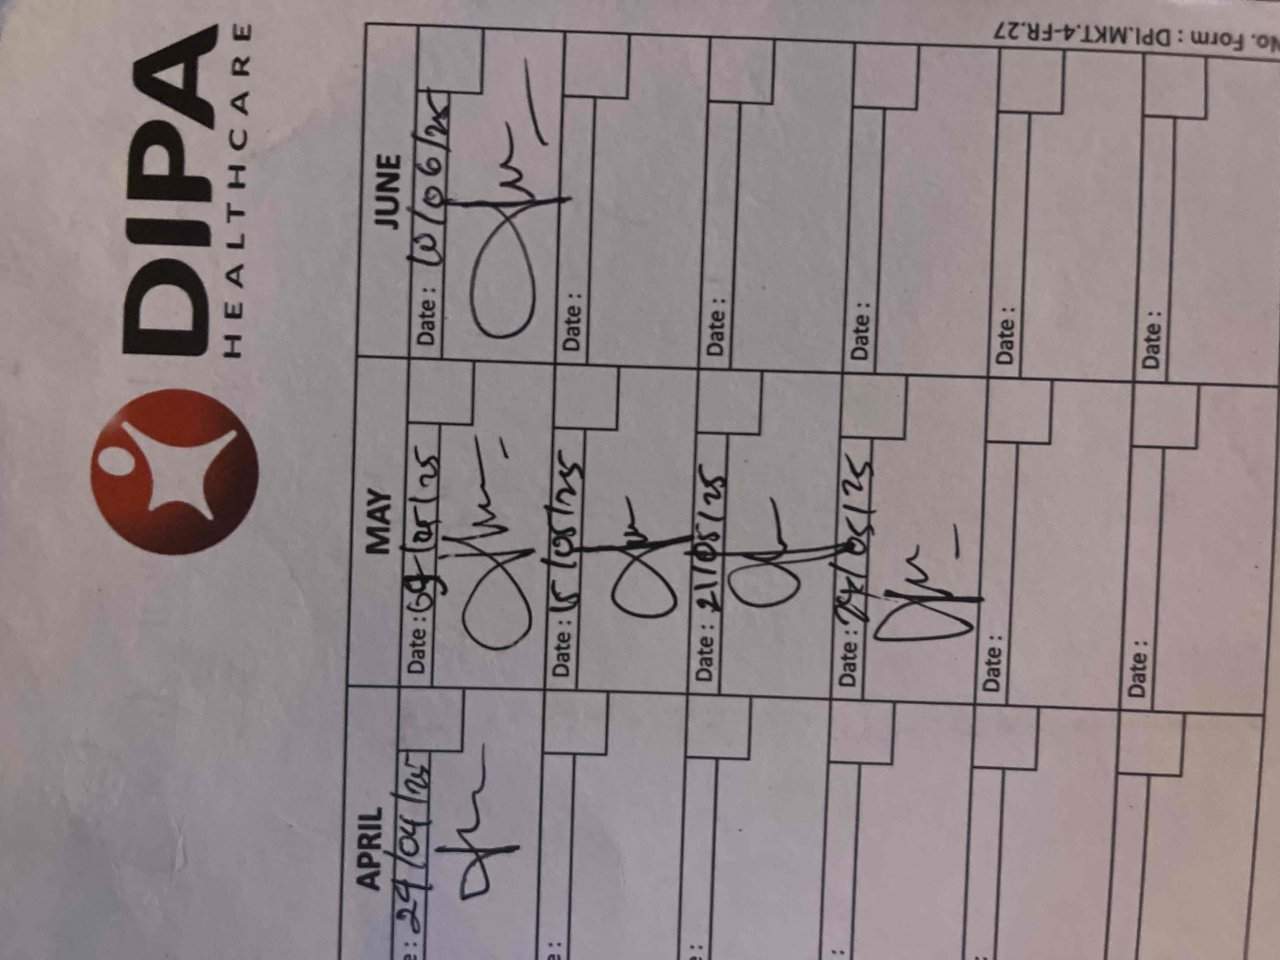 DIPA
HEALTHCARE
No. Form : DPI.MKT.4-FR.27
APRIL MAY JUNE
: 29/04/25 Date : 09/05/25 Date : 10/06/25
: Date : 15/05/25 Date :
: Date : 21/05/25 Date :
: Date : 28/05/25 Date :
: Date : Date :
Date : Date :